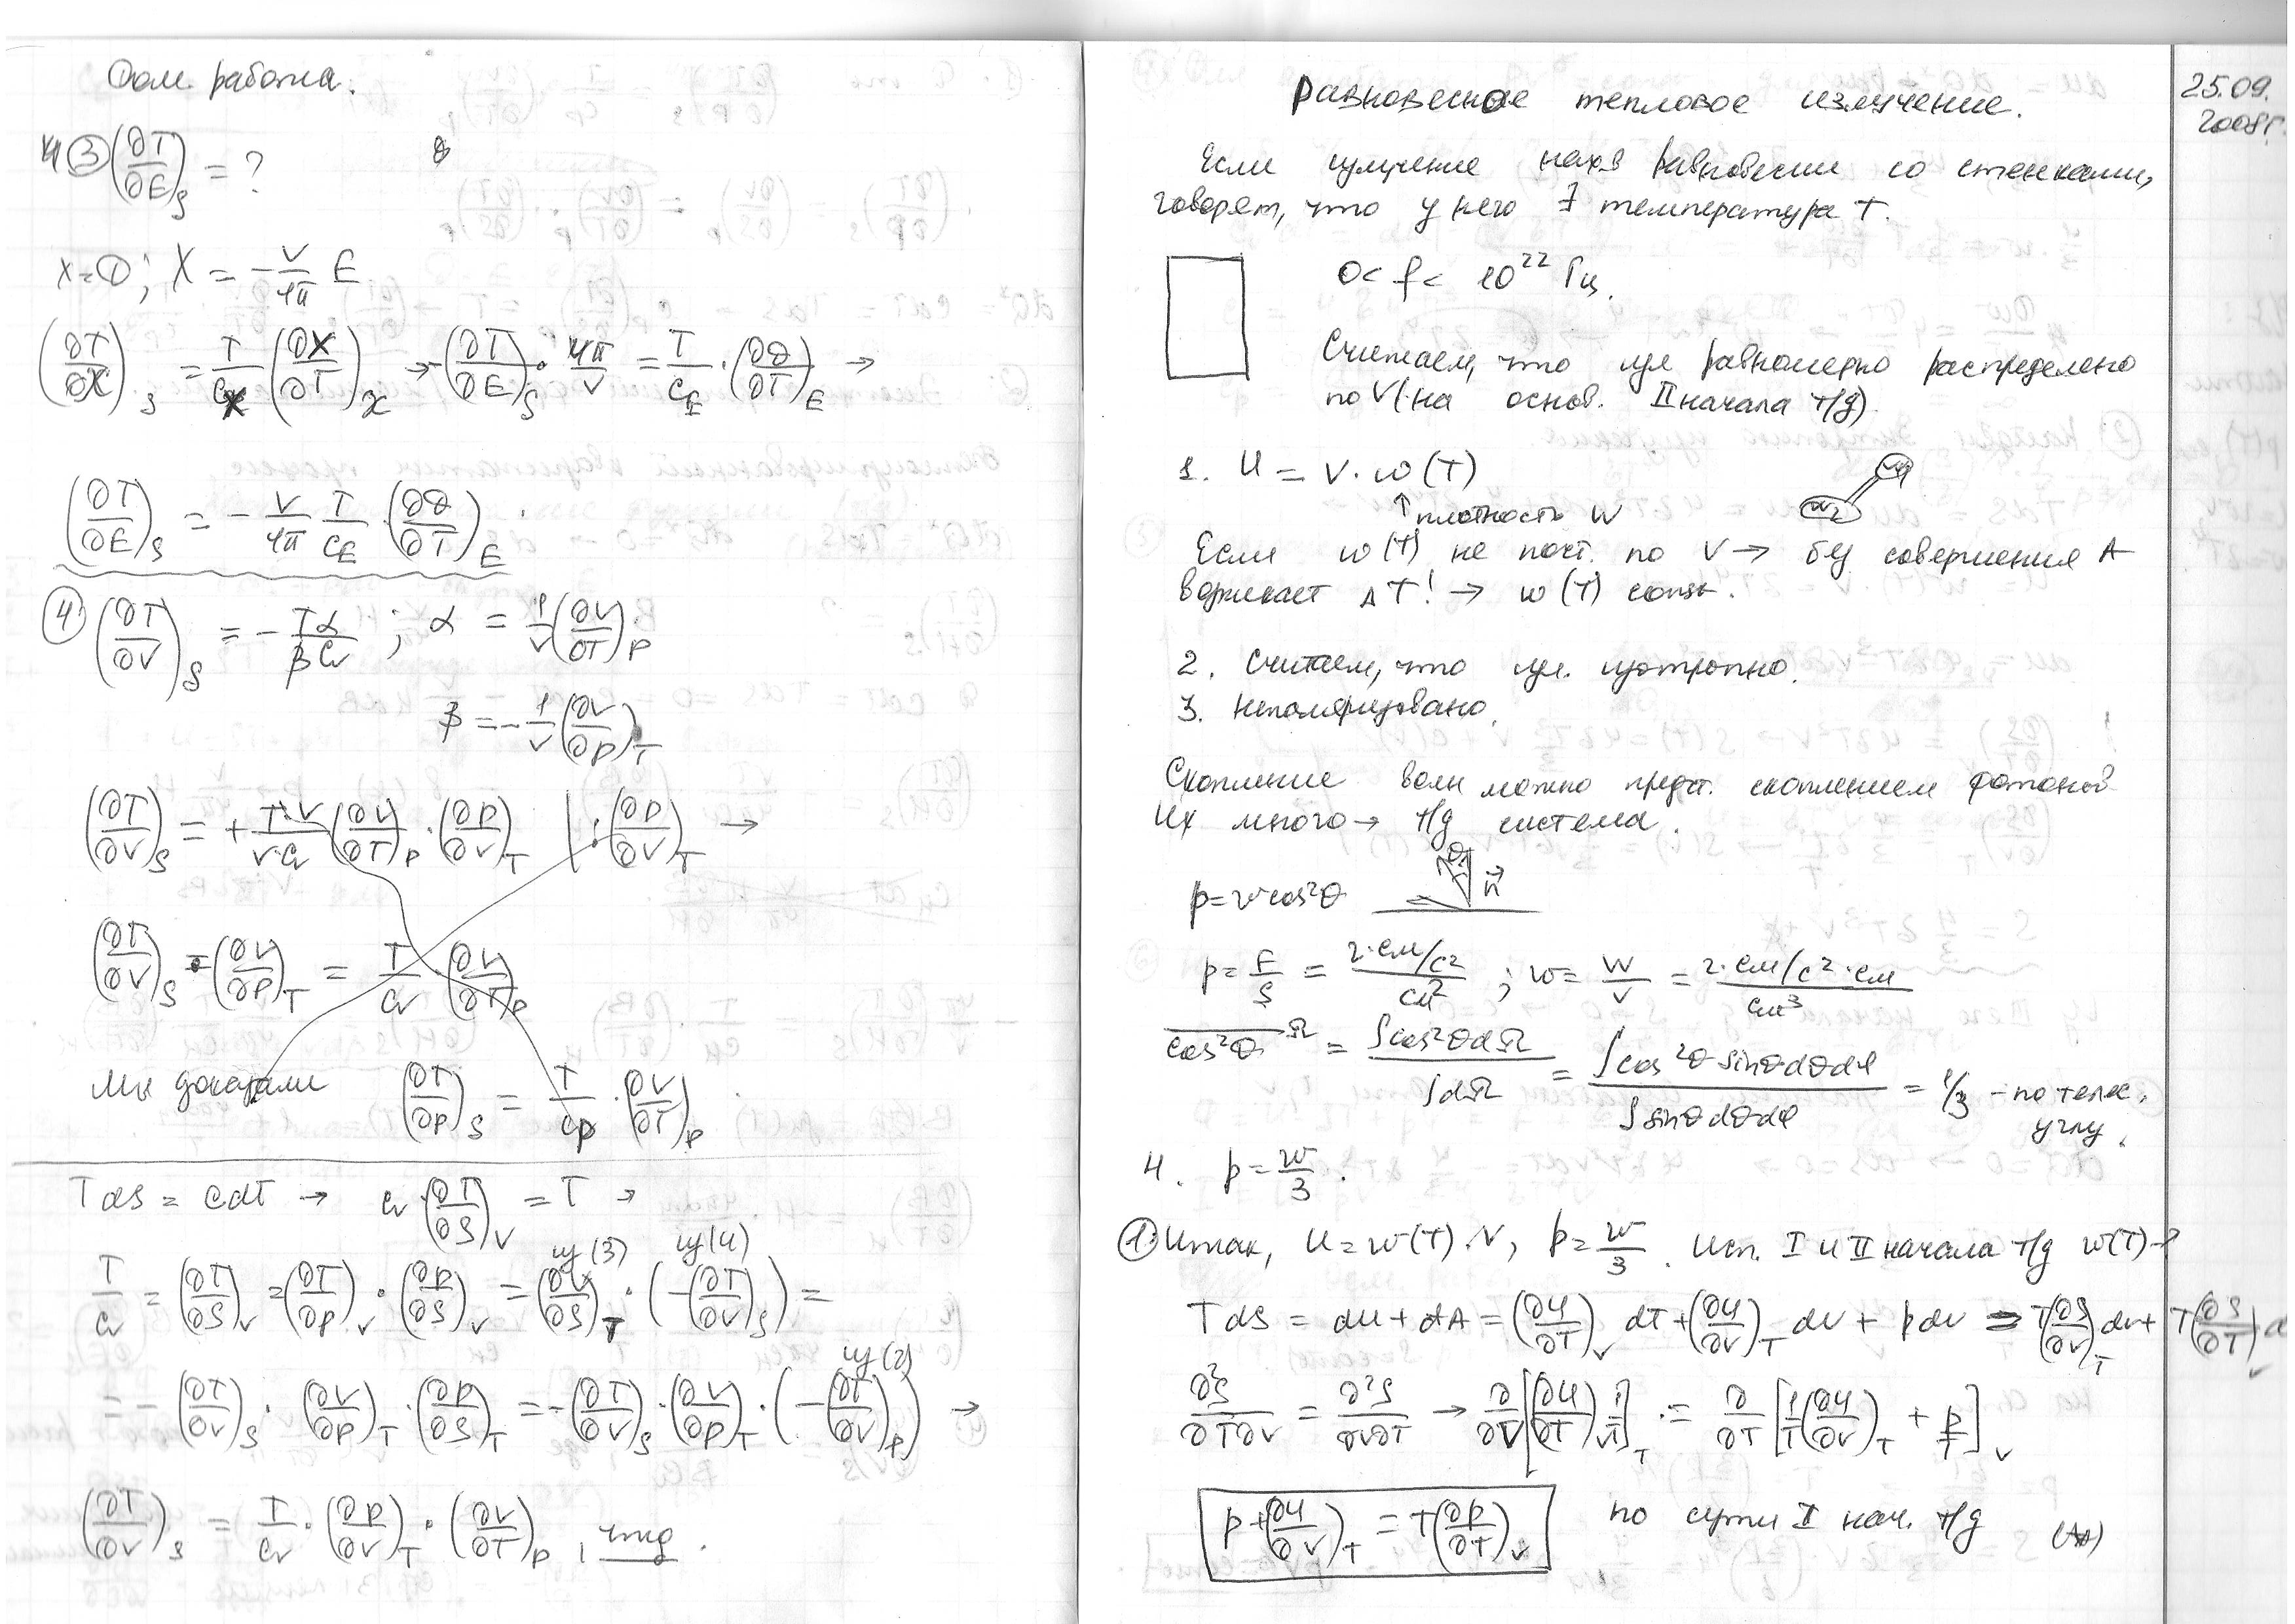 Дом. работа:
③ (∂T/∂E)_S = ?
x = D; X = -V/4π E
(∂T/∂X)_S = T/C_x (∂X/∂T)_x → -(∂T/∂E)_S · 4π/V = T/C_E · (∂D/∂T)_E →
(∂T/∂E)_S = - V/4π T/C_E · (∂D/∂T)_E
④ (∂T/∂V)_S = - Tα/βC_V ; α = 1/V (∂V/∂T)_P
β = - 1/V (∂V/∂P)_T
(∂T/∂V)_S = + T·V/V C_V (∂V/∂T)_P · (∂P/∂V)_T | : (∂P/∂V)_T →
(∂T/∂V)_S · (∂V/∂P)_T = T/C_V (∂V/∂T)_P
Мы доказали (∂T/∂P)_S = T/C_P · (∂V/∂T)_P
TdS = CdT → C_V (∂T/∂S)_V = T →
из (3) из (4)
T/C_V = (∂T/∂S)_V = (∂T/∂P)_V · (∂P/∂S)_V = (∂V/∂S)_T · (-(∂T/∂V)_S) =
из (2)
= - (∂T/∂V)_S · (∂V/∂P)_T · (∂P/∂S)_T = -(∂T/∂V)_S · (∂V/∂P)_T · (-(∂T/∂V)_P) →
(∂T/∂V)_S = T/C_V · (∂P/∂V)_T · (∂V/∂T)_P , чтд.
Равновесное тепловое излучение.
25.09.
2008г.
Если излучение нах. в равновесии со стенками,
говорят, что у него ∃ температура T.
0 < f < 10^22 Гц.
Считаем, что изл равномерно распределено
по V (на основ. II начала т/д).
1. U = V · w(T)
↑ плотность W
w_1
w_2
Если w(T) не пост. по V → без совершения A
возникает ΔT! → w(T) const.
2. Считаем, что изл. изотропно.
3. Неполяризовано.
Скопление волн можно предст. скоплением фотонов
Их много → т/д система.
p = w cos²θ
θ n⃗
p = F/S = г·см/с² / см² ; w = W/V = г·см/с²·см / см³
cos²θ^Ω = ∫cos²θdΩ / ∫dΩ = ∫cos²θ sinθdθdφ / ∫sinθdθdφ = 1/3 - по телес.
углу.
4. p = w/3.
① Итак, U = w(T)·V, p = w/3. Исп. I и II начала т/д w(T)-?
TdS = dU + dA = (∂U/∂T)_V dT + (∂U/∂V)_T dV + pdV = T(∂S/∂V)_T dV + T(∂S/∂T)_V d
∂²S/∂T∂V = ∂²S/∂V∂T → ∂/∂V [(∂U/∂T)_V 1/T]_T = ∂/∂T [1/T (∂U/∂V)_T + p/T]_V
p + (∂U/∂V)_T = T(∂p/∂T)_V по сути II нач. т/д (*)